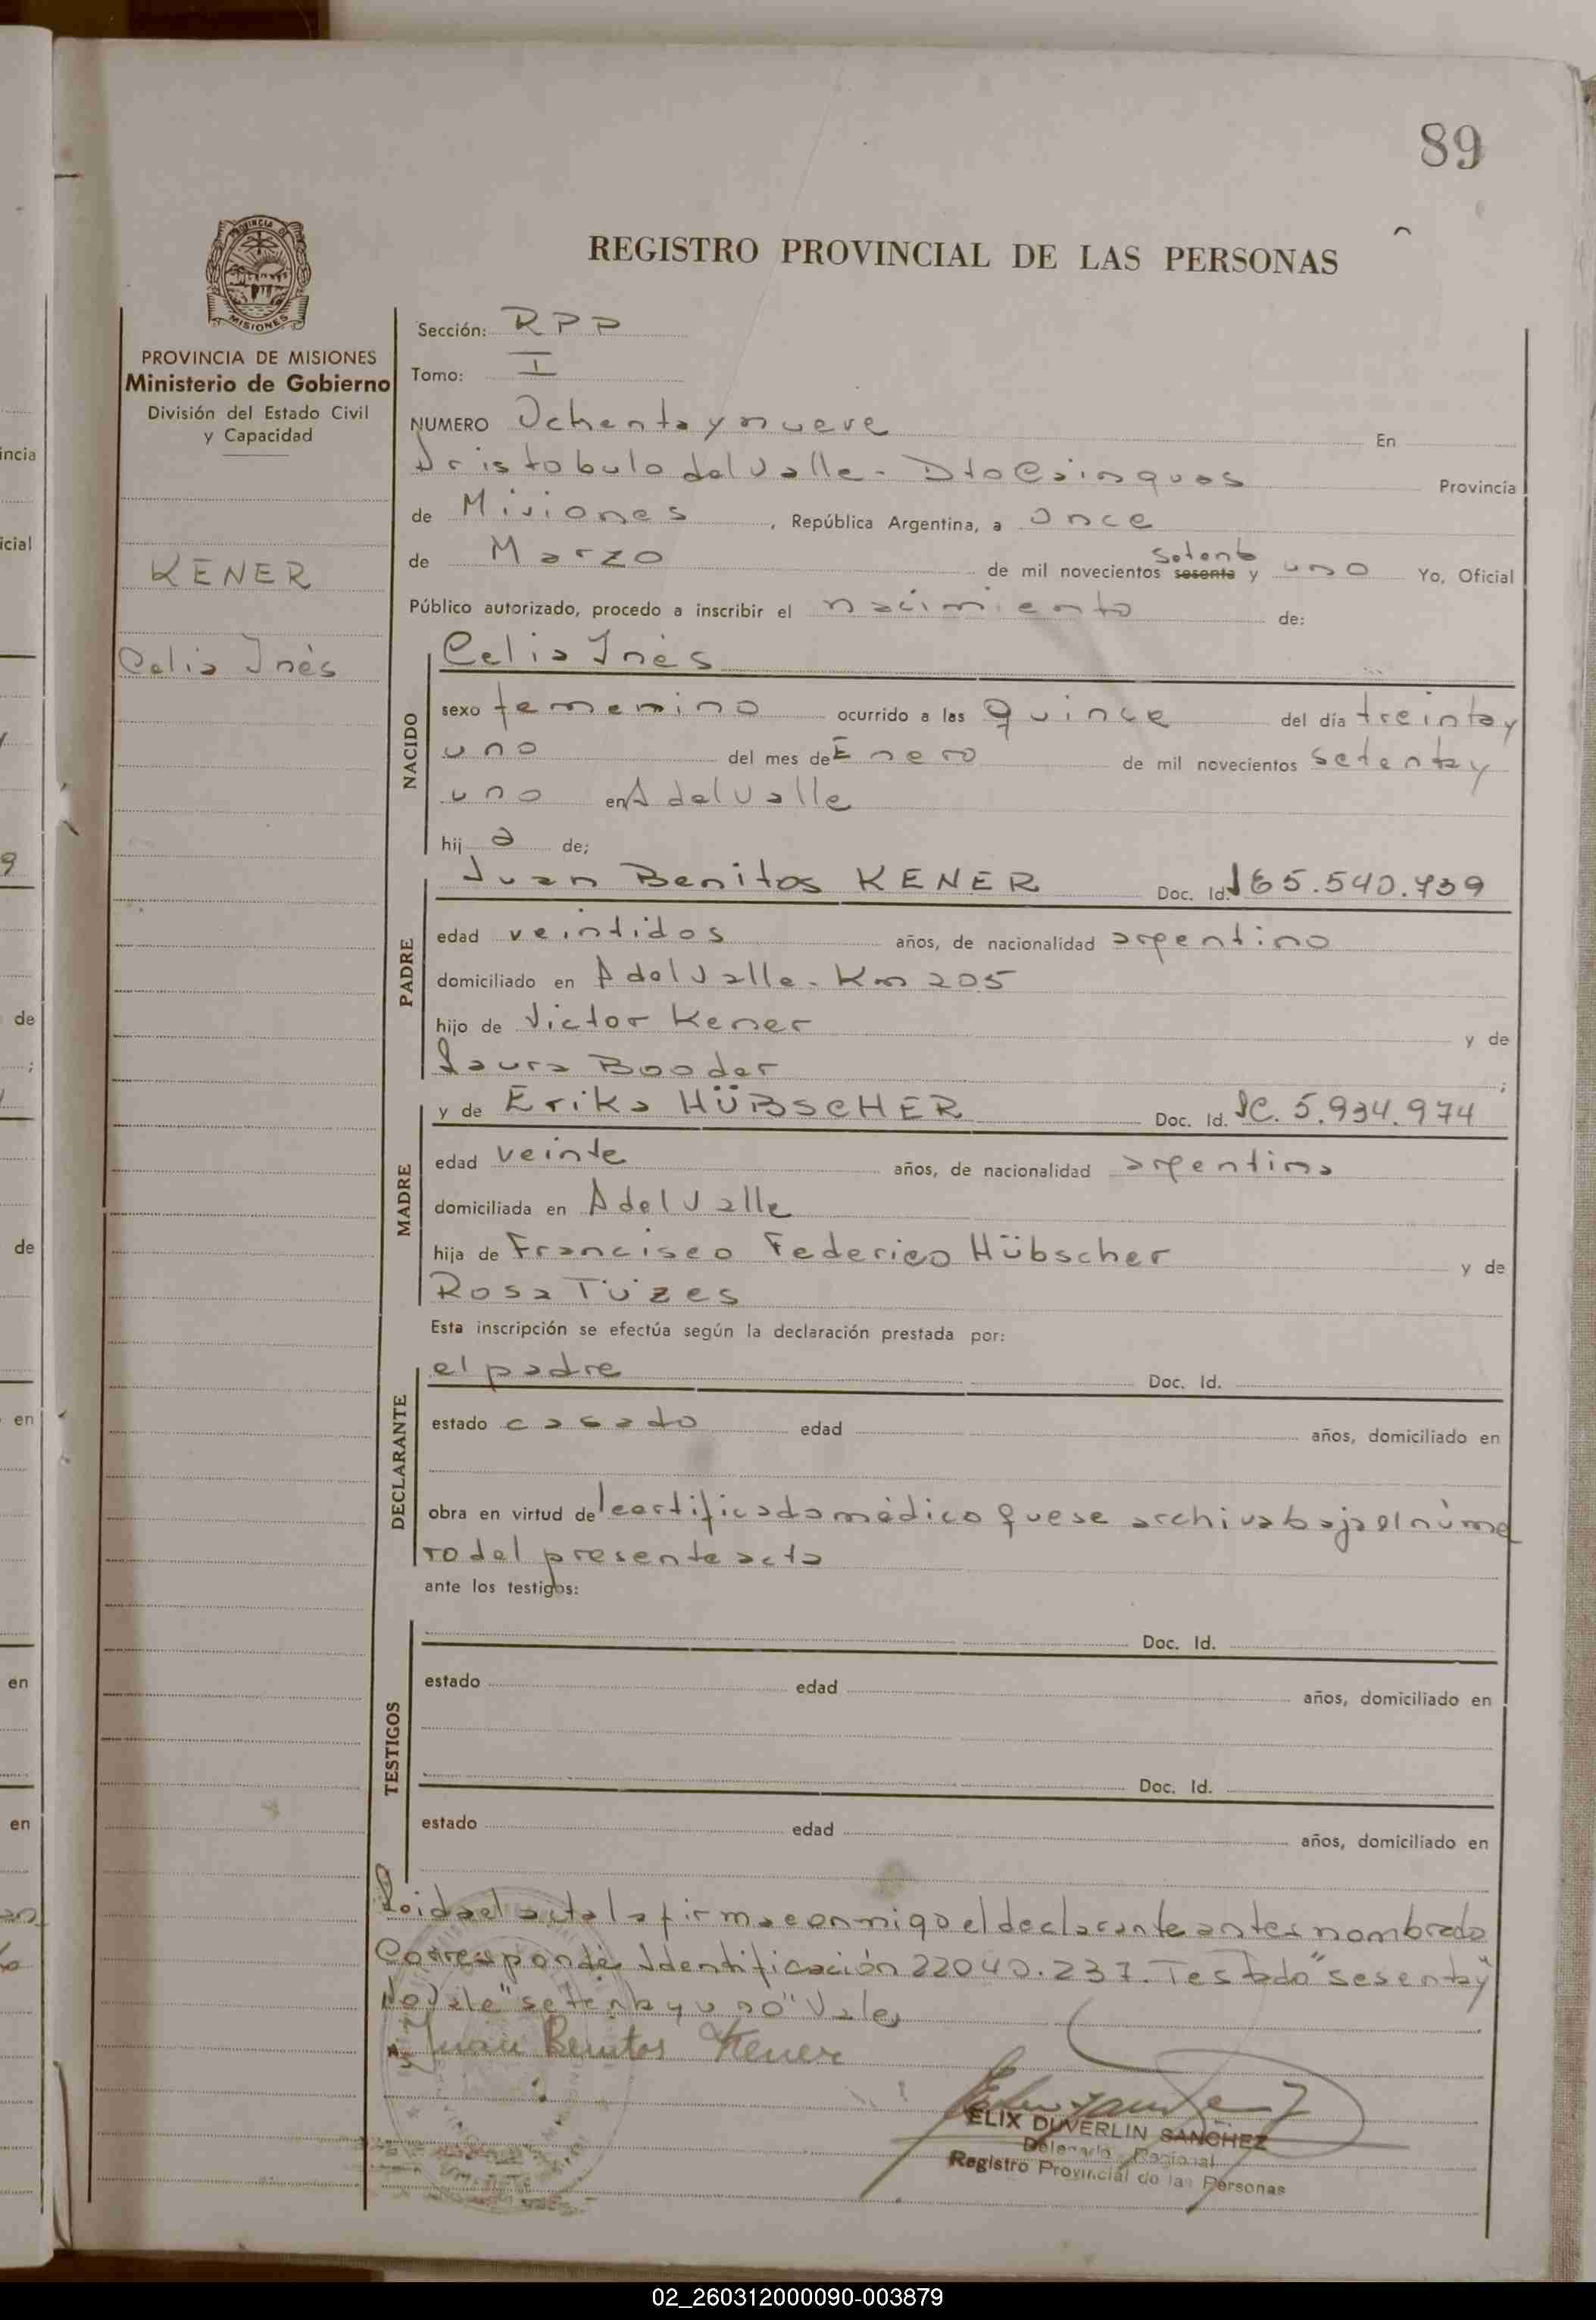 89
REGISTRO PROVINCIAL DE LAS PERSONAS
PROVINCIA DE MISIONES
Ministerio de Gobierno
División del Estado Civil
y Capacidad
KENER
Celia Inés
Sección: RPP
Tomo: I
NUMERO Ochenta y nueve En
Aristobulo del Valle - Dto Cainguas Provincia
de Misiones, República Argentina, a once
de Marzo de mil novecientos sesenta setenta y uno Yo, Oficial
Público autorizado, procedo a inscribir el nacimiento de:
NACIDO
Celia Inés
sexo femenino ocurrido a las quince del día treinta y
uno del mes de Enero de mil novecientos setenta y
uno en A del Valle
hij a de;
PADRE
Juan Benitos KENER Doc. Id.
edad veintidos años, de nacionalidad argentino
domiciliado en A del Valle - Km 205
hijo de Victor Kener y de
Laura Booder ;
MADRE
y de Erika HÜBSCHER Doc. Id. 5.934.974
edad veinte años, de nacionalidad argentina
domiciliada en A del Valle
hija de Francisco Federico Hübscher y de
Rosa Tüzes
Esta inscripción se efectúa según la declaración prestada por:
DECLARANTE
el padre Doc. Id.
estado casado edad años, domiciliado en
obra en virtud de l certificado médico que se archiva bajo el núme
ro del presente acta
ante los testigos:
TESTIGOS
Doc. Id.
estado edad años, domiciliado en
Doc. Id.
estado edad años, domiciliado en
Leida el acta la firma conmigo el declarante antes nombrado
Corresponde Identificación 22040.237. Testado "sesenta y"
No Vale "setenta y uno" Vale
Juan Benitos Kener
ELIX DUVERLIN SANCHEZ
Delegado Regional
Registro Provincial de las Personas
02_260312000090-003879